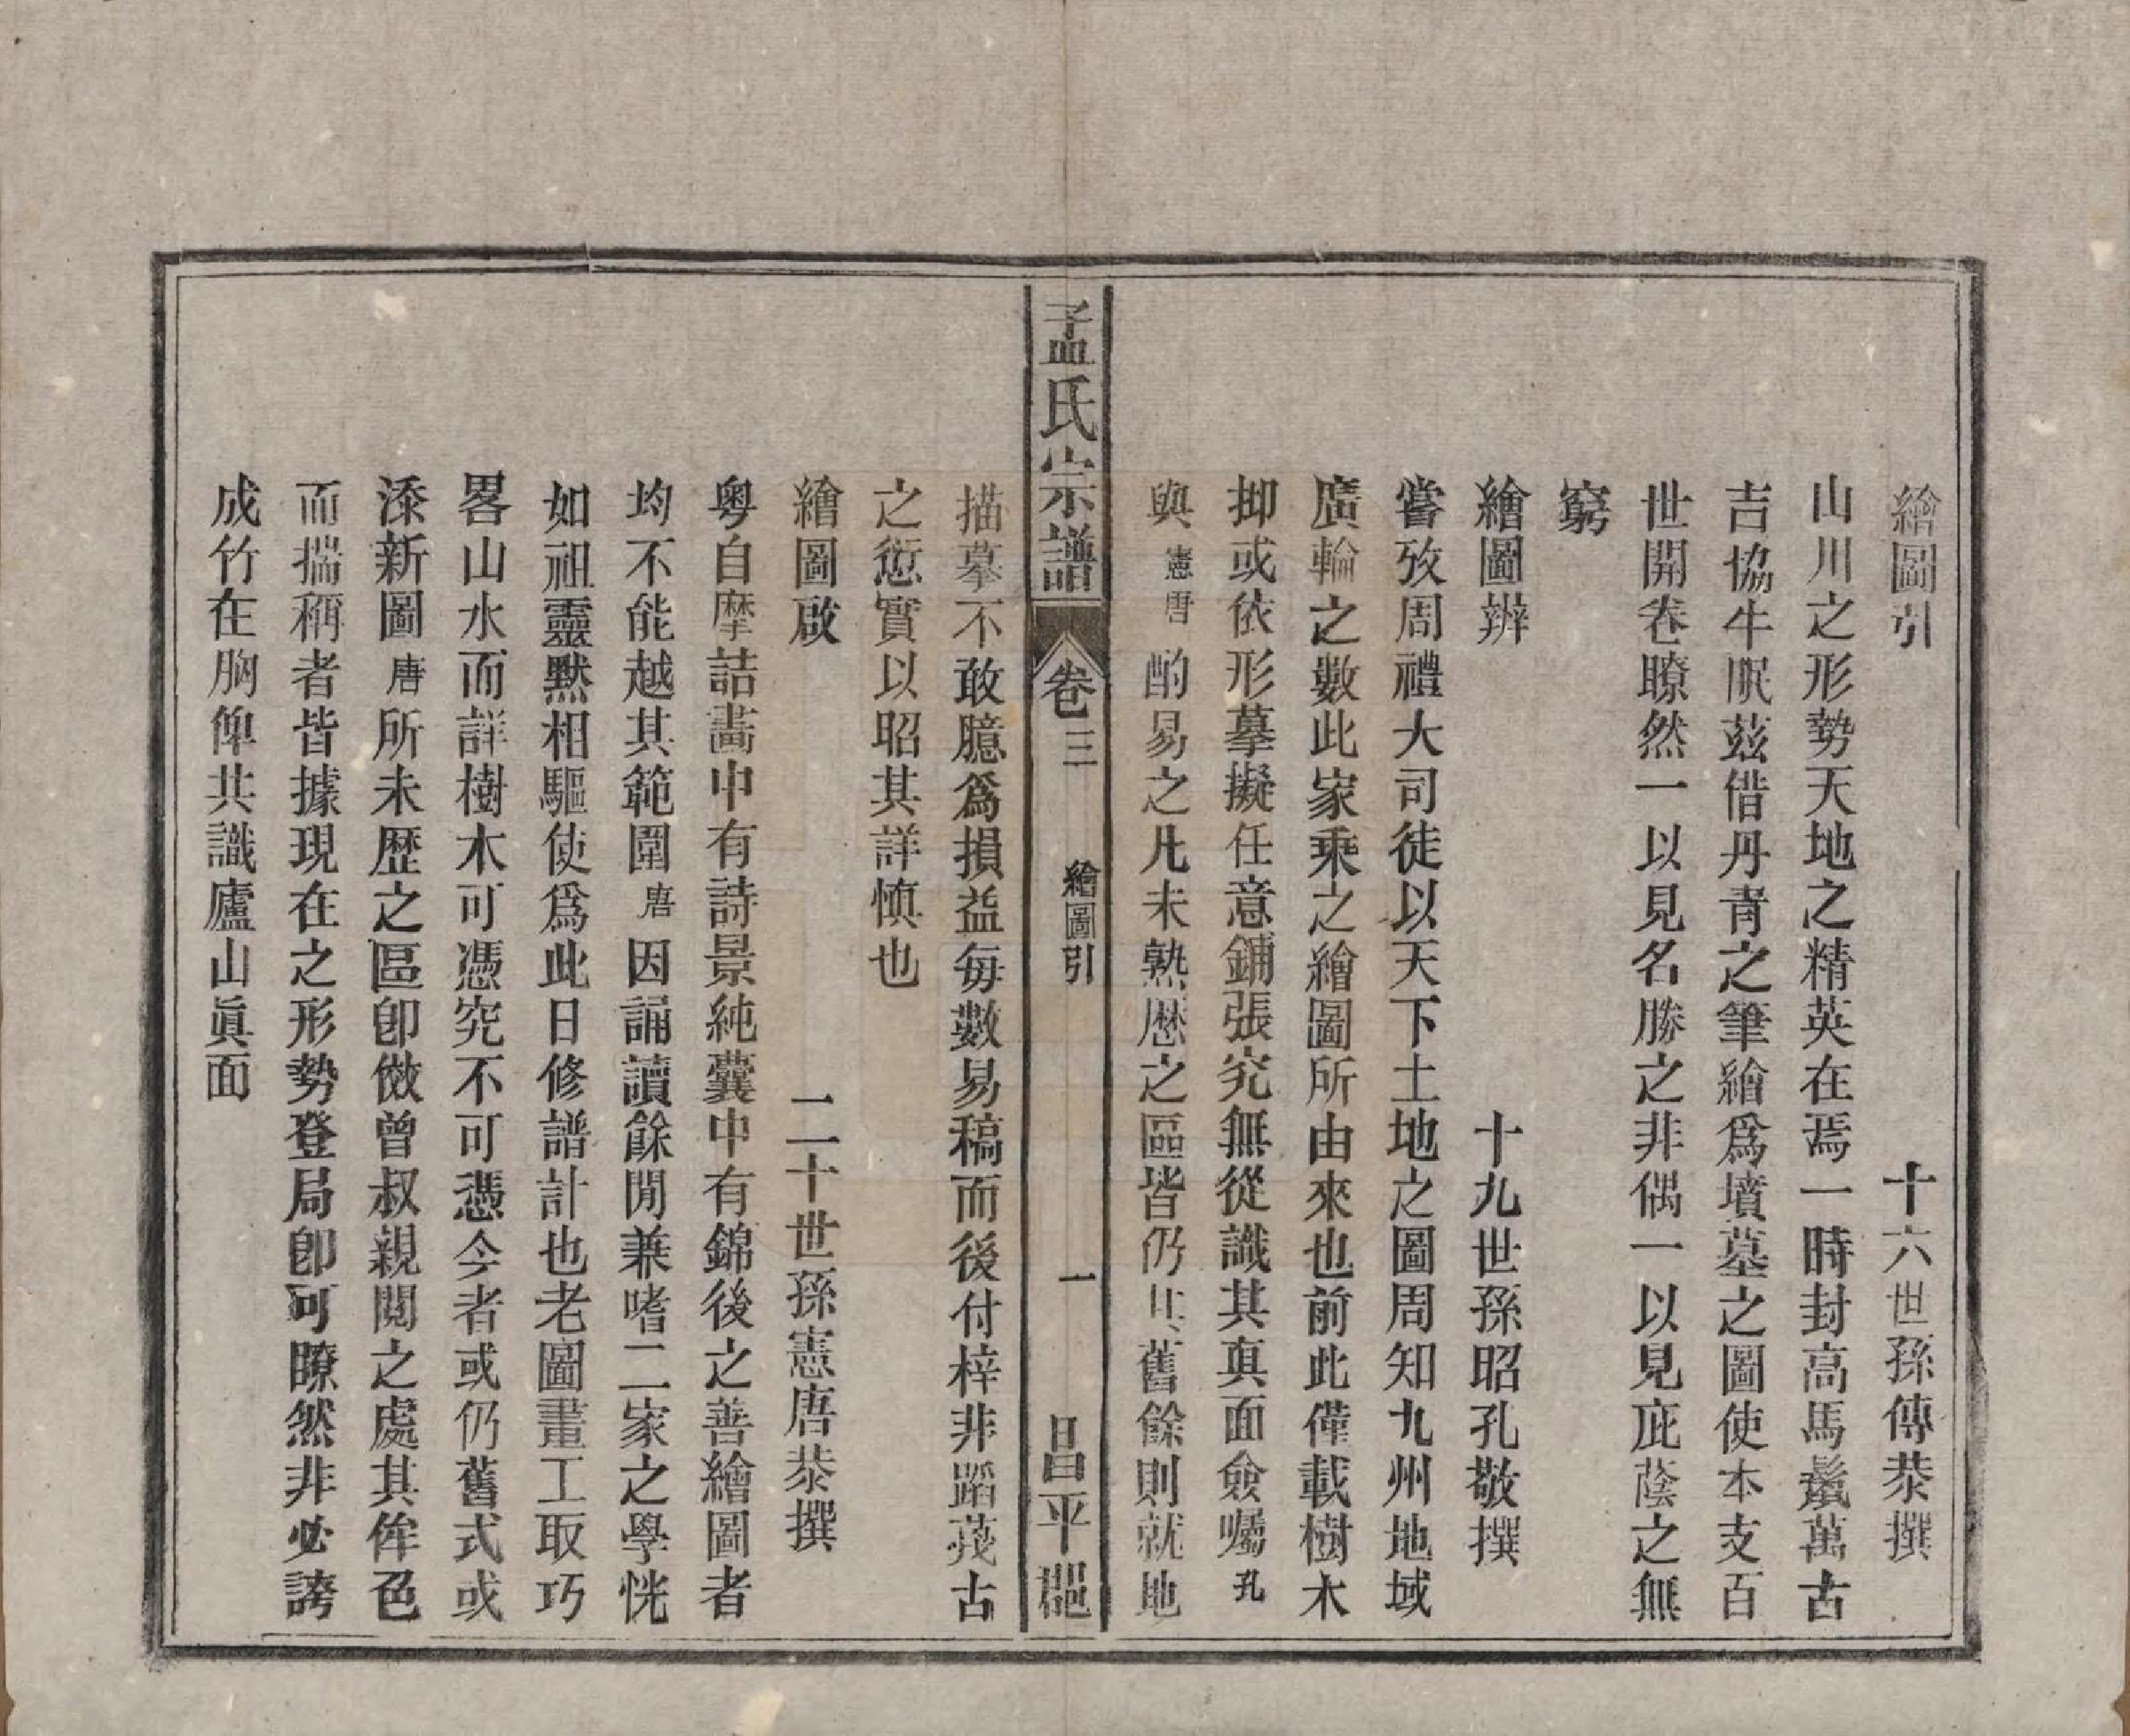 繪圖引　十六世孫傳恭撰
山川之形勢天地之精英在焉一時封高馬鬛萬古
吉協牛眠茲借丹青之筆繪爲墳墓之圖使本支百
世開卷瞭然一以見名勝之非偶一以見庇蔭之無
窮
繪圖辨　十九世孫昭孔敬撰
嘗攷周禮大司徒以天下土地之圖周知九州地域
廣輪之數此家乘之繪圖所由來也前此僅載樹木
抑或依形摹擬任意鋪張究無從識其真面僉囑孔
與憲唐酌易之凡未熟歷之區皆仍其舊餘則就地
描摹不敢臆爲損益每數易稿而後付梓非蹈茂古
之愆實以昭其詳慎也
繪圖啟　二十世孫憲唐恭撰
粵自摩詰畵中有詩景純囊中有錦後之善繪圖者
均不能越其範圍唐因誦讀餘閒兼嗜二家之學恍
如祖靈默相驅使爲此日修譜計也老圖畫工取巧
畧山水而詳樹木可憑究不可憑今者或仍舊式或
添新圖唐所未歷之區卽倣曾叔親閱之處其侔色
而揣稱者皆據現在之形勢登局卽可瞭然非必誇
成竹在胸俾共識廬山眞面
孟氏宗譜　卷三　繪圖引　一　昌平郡